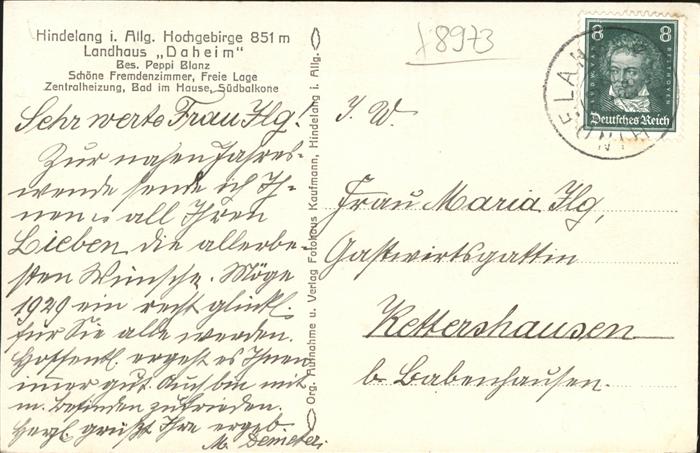 Hindelang i. Allg. Hochgebirge 851 m
Landhaus „Daheim"
Bes. Peppi Blanz
Schöne Fremdenzimmer, Freie Lage
Zentralheizung, Bad im Hause, Südbalkone
Sehr werte Frau Ilg!
Zur nahen Jahres-
wende sende ich Ih-
nen u all Ihren
Lieben die allerbe-
sten Wünsche. Möge
1929 ein recht glückl.
für Sie alle werden.
Hoffentl. ergeht es Ihnen
immer gut. Auch bin mit
m. Befinden zufrieden.
Herzl. grüßt Ihre ergeb.
M. Demeter
Org. Aufnahme u. Verlag Fotohaus Kaufmann, Hindelang i. Allg.
18973
8 8
LUDW. VAN
BEETHOVEN
Deutsches Reich
I. W.
Frau Maria Ilg,
Gastwirtsgattin
Kettershausen
b. Babenhausen.